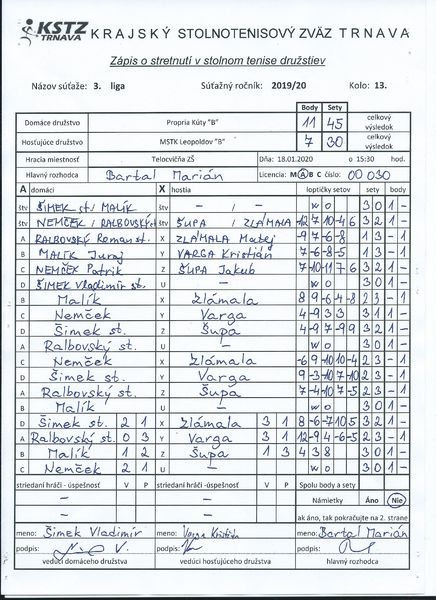 KSTZ TRNAVA KRAJSKÝ STOLNOTENISOVÝ ZVÄZ TRNAVA
Zápis o stretnutí v stolnom tenise družstiev
Názov súťaže: 3. liga Súťažný ročník: 2019/20 Kolo: 13.
Body Sety
Domáce družstvo Propria Kúty "B" 11 45 celkový výsledok
Hosťujúce družstvo MSTK Leopoldov "B" 7 30 celkový výsledok
Hracia miestnosť Telocvičňa ZŠ Dňa: 18.01.2020 o 15:30 hod.
Hlavný rozhodca Bartal Marián Licencia: M A B C číslo: 00 030
A domáci X hostia loptičky setov sety body
štv ŠIMEK st. / MALÍK štv - / - WO 3 0 1 -
štv NEMČEK / RALBOVSKÝ štv ŠUPA / ZLÁMALA 12 7 10 -4 6 3 2 1 -
A RALBOVSKÝ Roman st. X ZLÁMALA Matej -9 7 -6 -8 1 3 - 1
B MALÍK Juraj Y VARGA Kristián 7 -6 -8 -5 1 3 - 1
C NEMČEK Patrik Z ŠUPA Jakub 7 -10 11 -7 6 3 2 1 -
D ŠIMEK Vladimír st. U - WO 3 0 1 -
B Malík X Zlámala 8 9 -6 -4 -8 2 3 - 1
C Nemček Y Varga 4 -9 3 3 3 1 1 -
D Šimek st. Z Šupa 4 -9 7 -9 9 3 2 1 -
A Ralbovský st. U - WO 3 0 1 -
C Nemček X Zlámala -6 9 -10 10 -4 2 3 - 1
D Šimek st. Y Varga 9 -3 -10 7 -10 2 3 - 1
A Ralbovský st. Z Šupa 7 -4 10 -7 -5 2 3 - 1
B Malík U - WO 3 0 1 -
D Šimek st. 2 1 X Zlámala 3 1 8 -6 -7 10 5 3 2 1 -
A Ralbovský st. 0 3 Y Varga 3 1 12 -9 4 -6 -5 2 3 - 1
B Malík 1 2 Z Šupa 1 3 4 3 8 3 0 1 -
C Nemček 2 1 U - WO 3 0 1 -
striedaní hráči - úspešnosť V P striedaní hráči - úspešnosť V P Spolu body a sety
- - Námietky Áno Nie
- - ak áno, tak pokračujte na 2. strane
meno: Šimek Vladimír meno: Varga Kristián meno: Bartal Marián
podpis: podpis: podpis:
vedúci domáceho družstva vedúci hosťujúceho družstva hlavný rozhodca